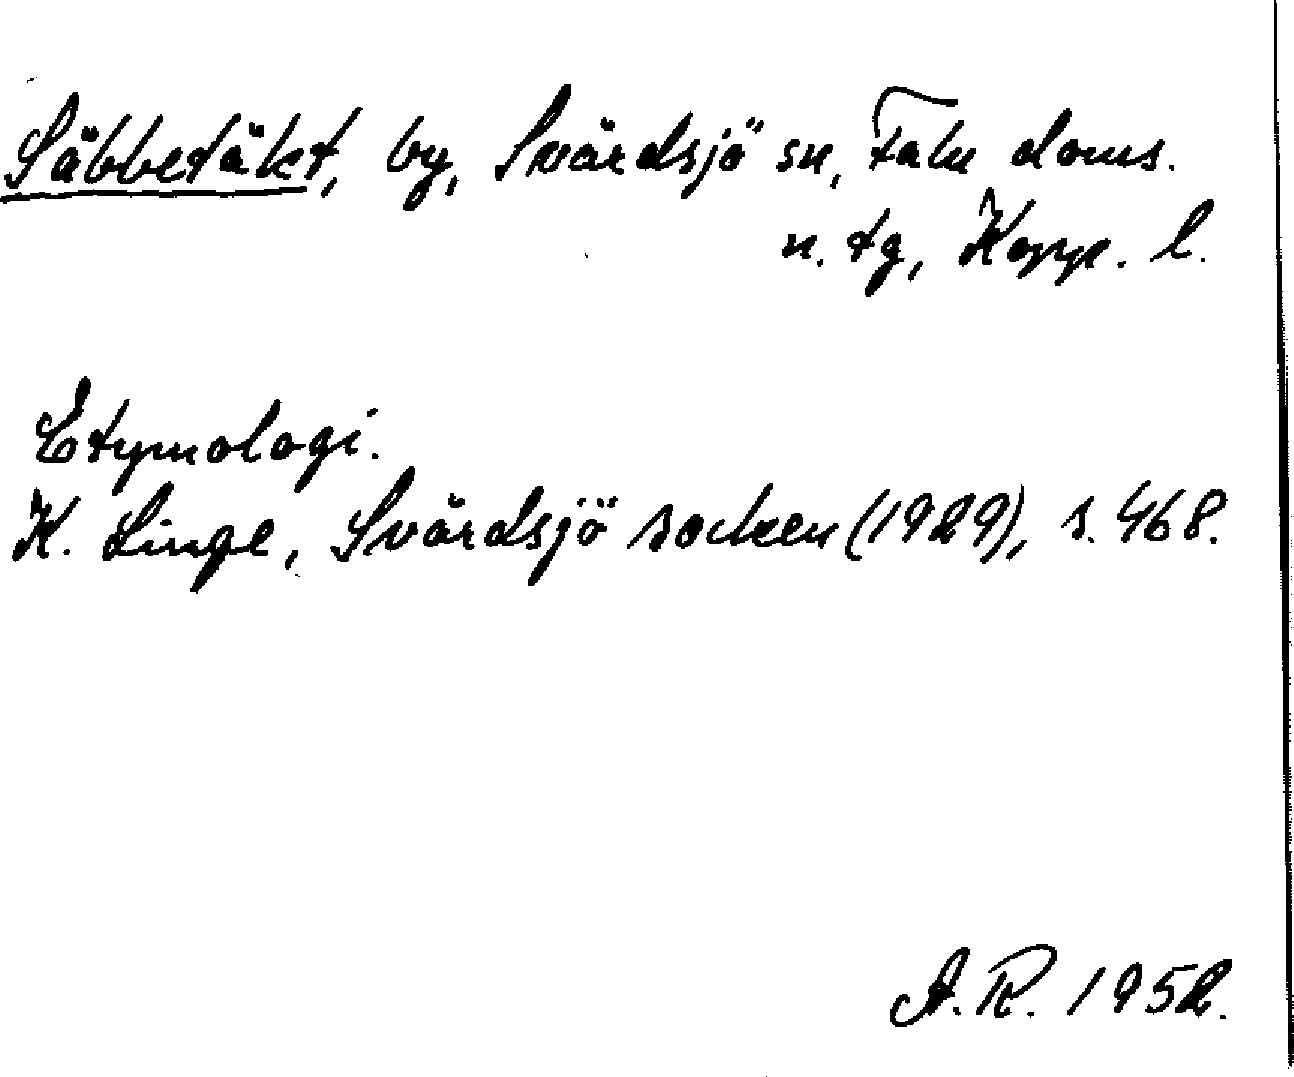 Säbbetäkt, by, Svärdsjö sn, Falu doms.
n. tg, Kopp. l.
Etymologi.
K. Linge, Svärdsjö socken (1929), s. 468.
A.R. 1952.